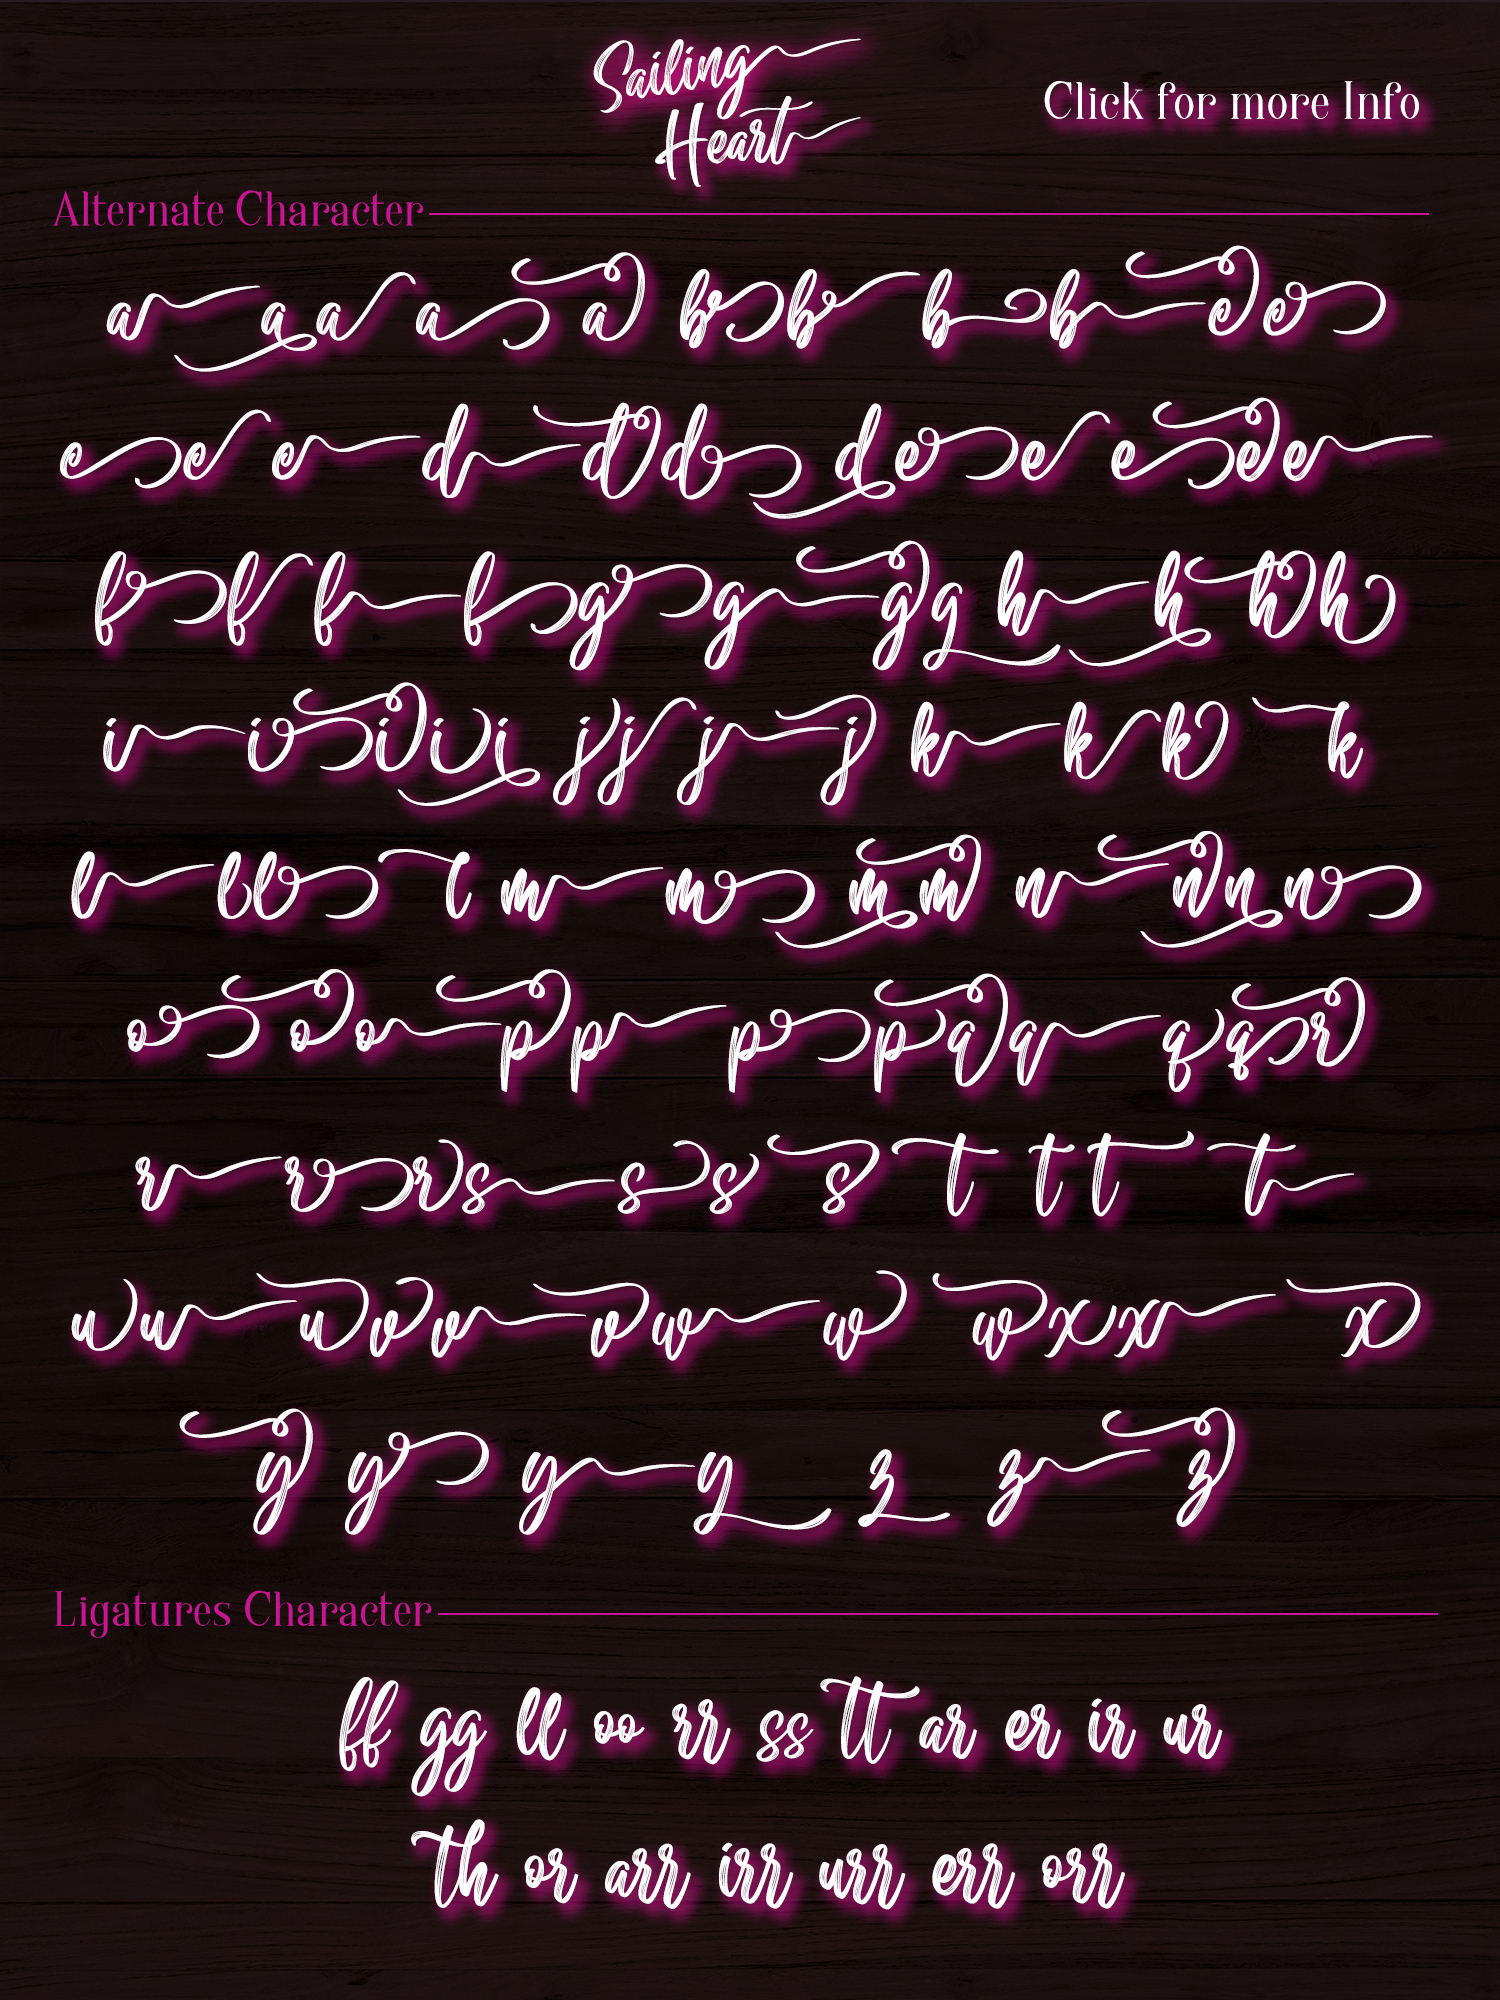 Sailing
Heart
Click for more Info
Alternate Character
a a a a a b b b b e e
e e e d d d d e e e e e
f f f f g g g g h h h h
i i i i i j j j j k k k k
l l l l m m m m n n n n
o o o p p p p q q q q r
r r r s s s s t t t t
u u u v v v w w w x x x
y y y y z z z
Ligatures Character
ff gg ll oo rr ss tt ar er ir ur
th or arr irr urr err orr